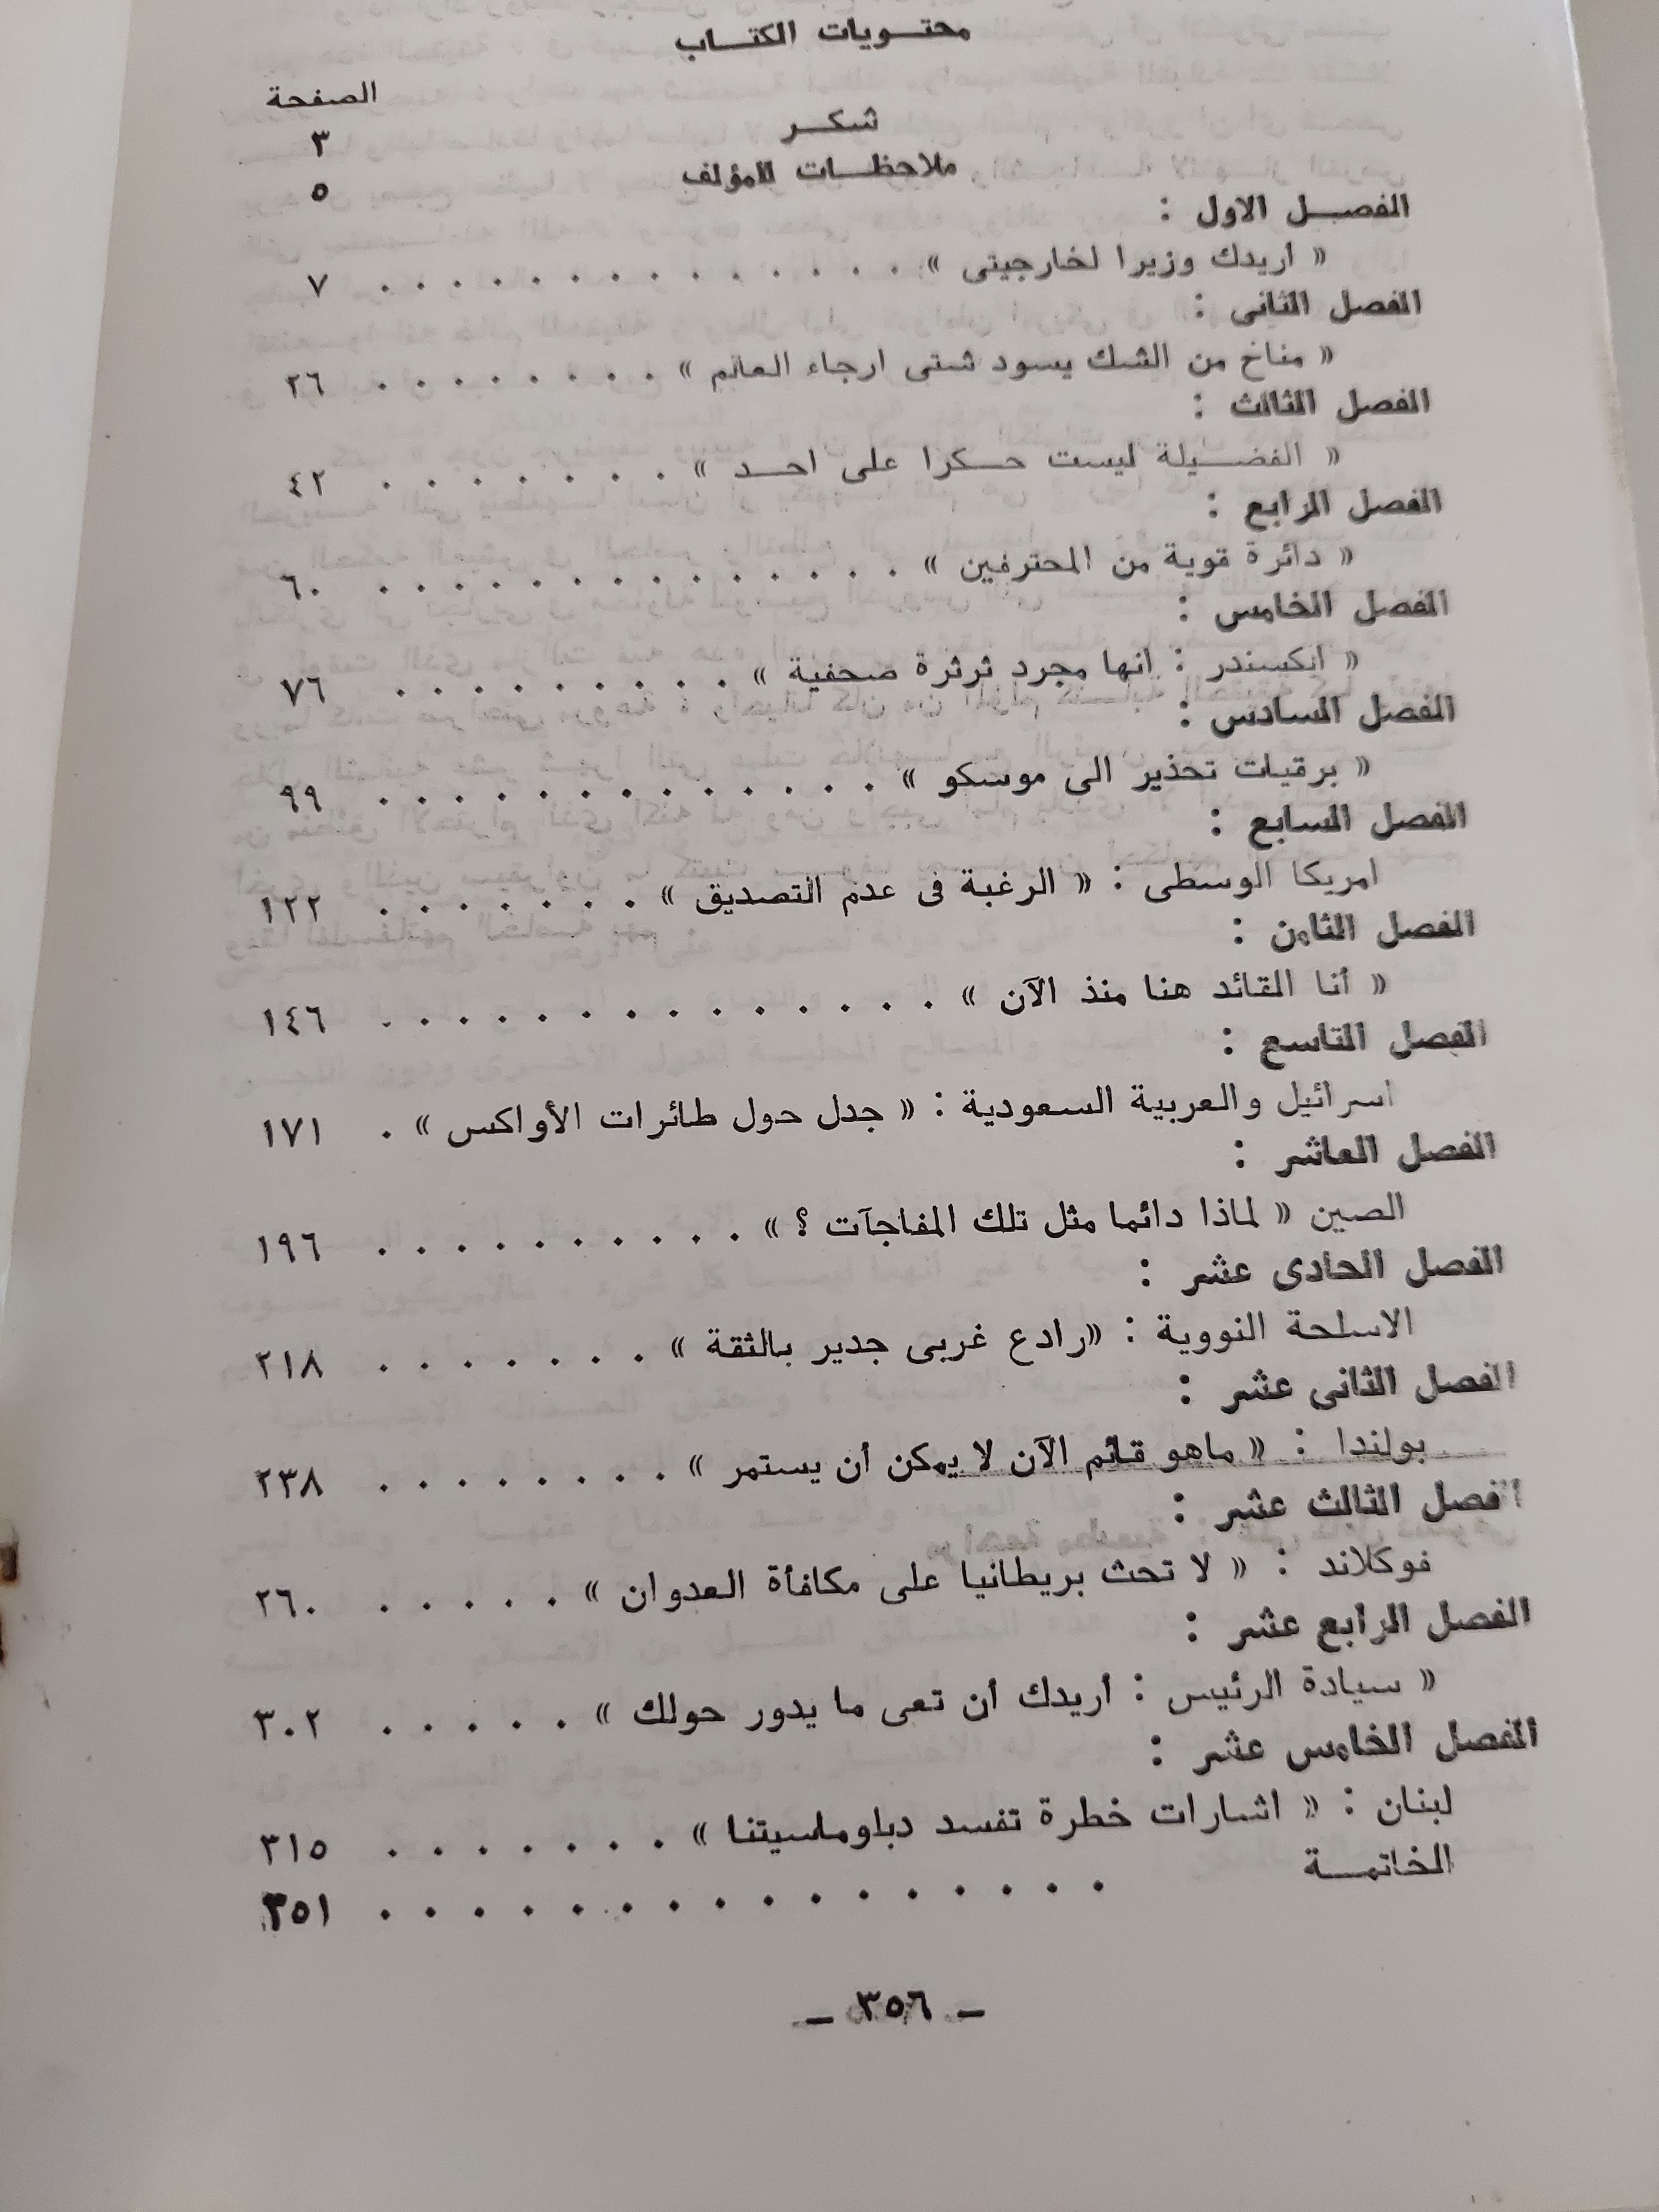 محتويات الكتاب
الصفحة
شكر ٣
ملاحظات المؤلف ٥
الفصل الاول :
« اريدك وزيرا لخارجيتى » . . . . . . . . . . . . . ٧
الفصل الثانى :
« مناخ من الشك يسود شتى ارجاء العالم » . . . . . . . . ٢٦
الفصل الثالث :
« الفضيلة ليست حكرا على احد » . . . . . . . ٤٢
الفصل الرابع :
« دائرة قوية من المحترفين » . . . . . . . . . . . . . ٦٠
الفصل الخامس :
« الكسندر : انها مجرد ثرثرة صحفية » . . . . . . . . . ٧٦
الفصل السادس :
« برقيات تحذير الى موسكو » . . . . . . . . . . . . ٩٩
الفصل السابع :
امريكا الوسطى : « الرغبة فى عدم التصديق » . . . . . . . ١٢٢
الفصل الثامن :
« أنا القائد هنا منذ الآن » . . . . . . . . . . . . . ١٤٦
الفصل التاسع :
اسرائيل والعربية السعودية : « جدل حول طائرات الأواكس » . ١٧١
الفصل العاشر :
الصين « لماذا دائما مثل تلك المفاجآت ؟ » . . . . . . . . . . ١٩٦
الفصل الحادى عشر :
الاسلحة النووية : «رادع غربى جدير بالثقة » . . . . . . . ٢١٨
الفصل الثانى عشر :
بولندا : « ماهو قائم الآن لا يمكن أن يستمر » . . . . . . . . ٢٣٨
الفصل الثالث عشر :
فوكلاند : « لا تحث بريطانيا على مكافأة العدوان » . . . . . ٢٦٠
الفصل الرابع عشر :
« سيادة الرئيس : أريدك أن تعى ما يدور حولك » . . . . . ٣٠٢
الفصل الخامس عشر :
لبنان : « اشارات خطرة تفسد دبلوماسيتنا » . . . . . . . ٣١٥
الخاتمة . . . . . . . . . . . . . . . . ٣٥١
ـ ٣٥٦ ـ